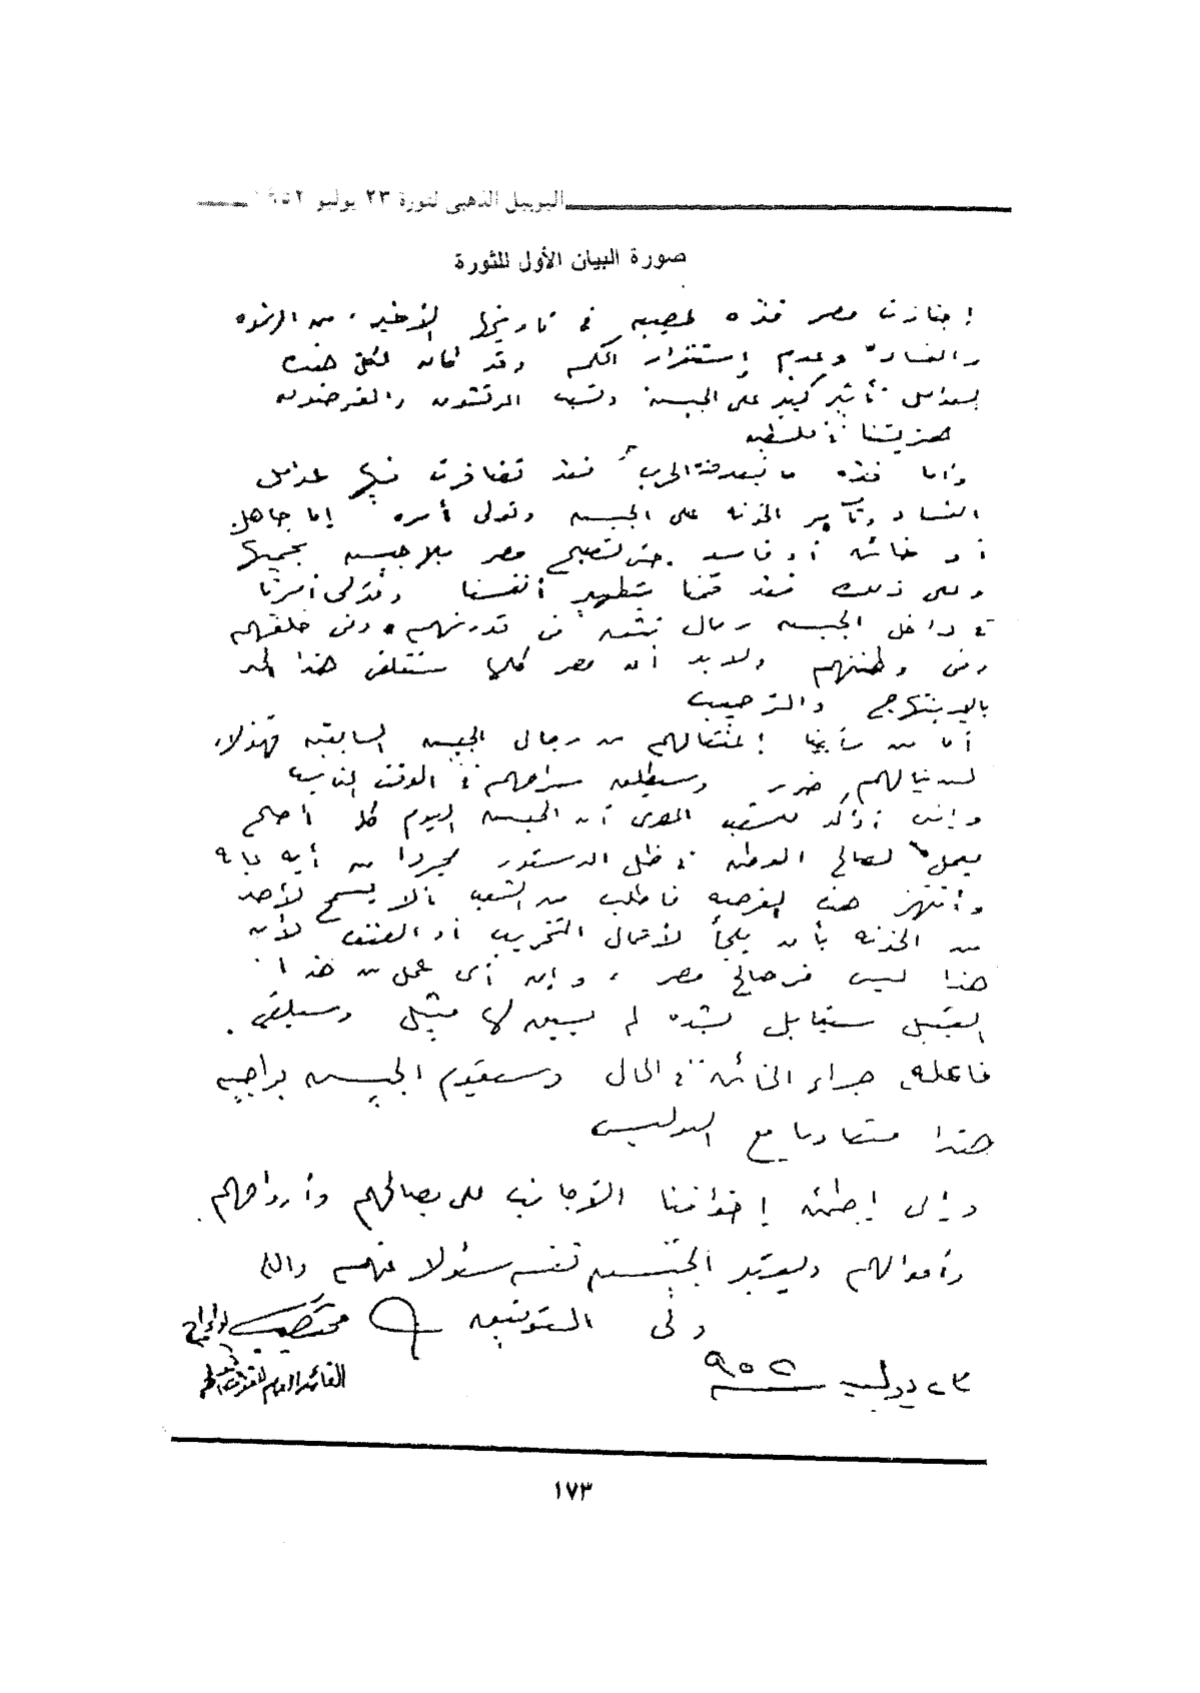 اليوبيل الذهبى لثورة ٢٣ يوليو ١٩٥٢
صورة البيان الأول للثورة
إجتازت مصر فتره عصيبه فى تاريخها الأخير من الرشوه
والفساد وعدم إستقرار الحكم وقد كان لكل هذه
العوامل تأثير كبير على الجيش وتسبب المرتشون والمغرضون
هزيمتنا فى فلسطين
وأما فتره ما بعد هذه الحرب فقد تضافرت فيها عوامل
الفساد وتآمر الخونه على الجيش وتولى أمره إما جاهل
أو خائن أو فاسد حتى تصبح مصر بلا جيش يحميها
وعلى ذلك فقد قمنا بتطهير أنفسنا وتولى أمرنا
فى داخل الجيش رجال نثق فى قدرتهم وفى خلقهم
وفى وطنيتهم ولا بد أن مصر كلها ستتلقى هذا الخبر
بالابتهاج والترحيب
أما من رأينا إعتقالهم من رجال الجيش السابقين فهؤلاء
لن ينالهم ضرر وسيطلق سراحهم فى الوقت المناسب
وإنى أؤكد للشعب المصرى أن الجيش اليوم كله أصبح
يعمل لصالح الوطن فى ظل الدستور مجردا من أية غايه
وأنتهز هذه الفرصه فأطلب من الشعب بألا يسمح لأحد
من الخونه بأن يلجأ لأعمال التخريب أو العنف لأن
هذا ليس فى صالح مصر ، وإن أى عمل من هذا
القبيل سيقابل بشده لم يسبق لها مثيل وسيلقى
فاعله جزاء الخائن فى الحال وسيقوم الجيش بواجبه
هذا متعاونا مع البوليس
وإنى إطمئن إخواننا الأجانب على مصالحهم وأرواحهم
وأموالهم ويعتبر الجيش نفسه مسئولا عنهم والله
ولى التوفيق
لواء أ.ح
القائد العام للقوات المسلحة
٢٣ يوليو ٩٥٢
١٧٣